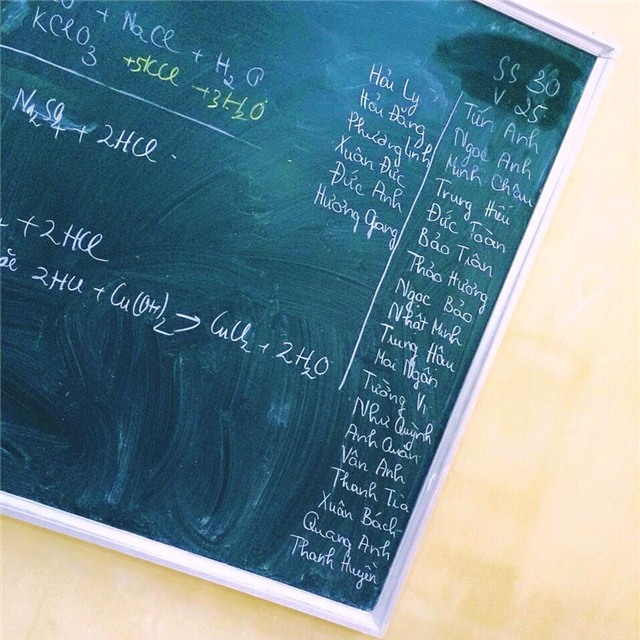 + NaCl + H2O
KClO3 +5KCl +3H2O
Na2SO4 + 2HCl.
+ 2HCl
2HCl + Cu(OH)2 → CuCl2 + 2H2O
Hải Ly
Hải Đăng
Phương Linh
Xuân Đức
Đức Anh
Hương Giang
SS 30
V. 25
Tiến Anh
Ngọc Anh
Minh Châu
Trung Hiếu
Đức Toàn
Bảo Trân
Thảo Hương
Ngọc Bảo
Nhật Minh
Trung Hậu
Mai Ngân
Tường Vi
Như Quỳnh
Anh Quân
Vân Anh
Thanh Trà
Xuân Bách
Quang Anh
Thanh Huyền